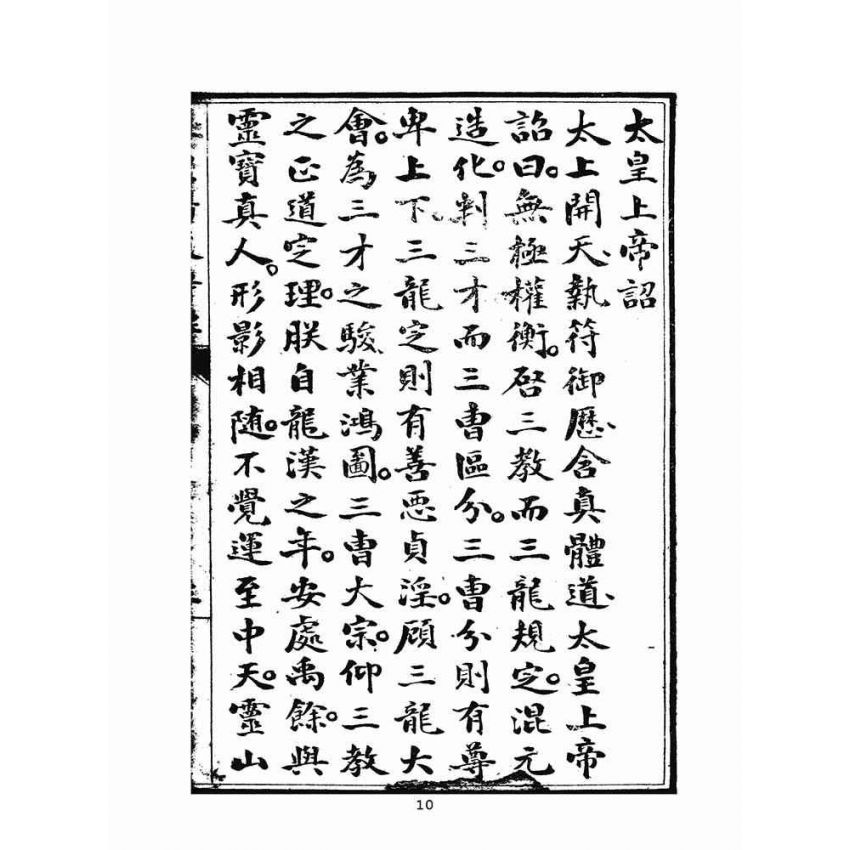 太皇上帝詔
太上開天、執符御歷、含真體道、太皇上帝
詔曰。無極權衡。啓三教而三龍規定。混元
造化。判三才而三曹區分。三曹分則有尊
卑上下、三龍定則有善惡貞淫。顧三龍大
會。為三才之駿業鴻圖。三曹大宗。仰三教
之正道定理。朕自龍漢之年。安處禹餘。與
靈寶真人。形影相随。不覺運至中天。靈山
10